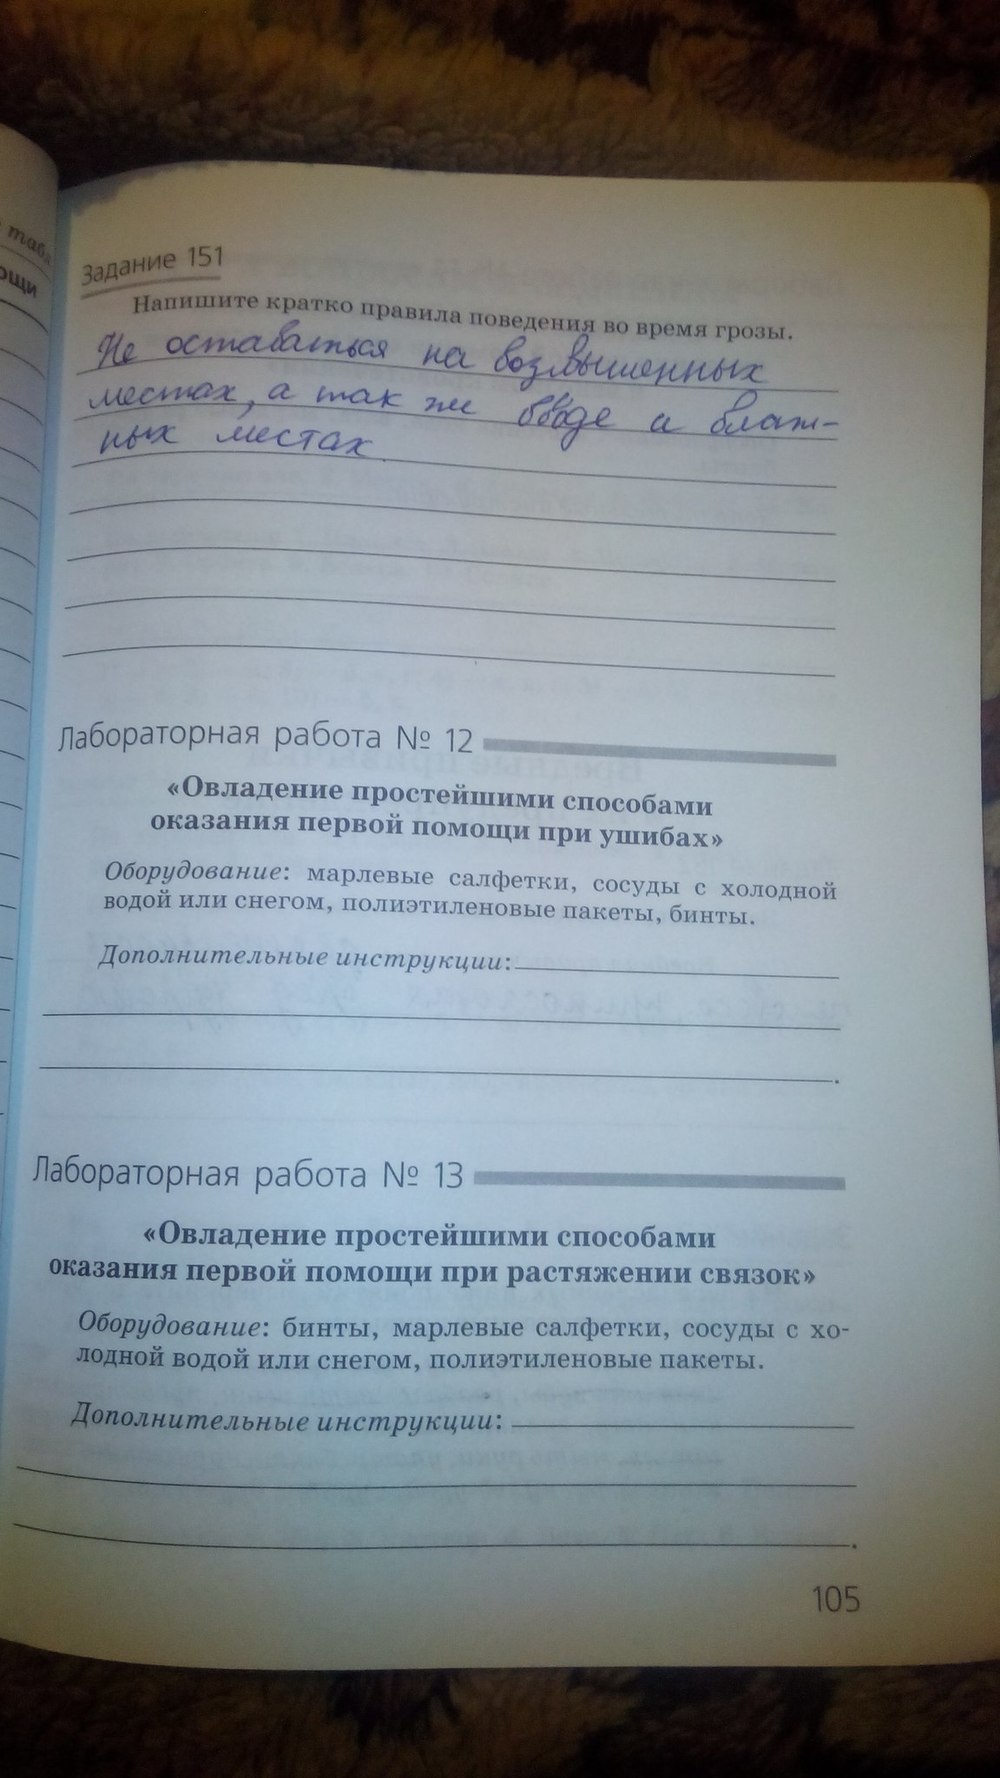 таба
ощи
Задание 151
Напишите кратко правила поведения во время грозы.
Не оставаться на возвышенных
местах, а так же вводе и влаж-
ных местах
Лабораторная работа № 12
«Овладение простейшими способами
оказания первой помощи при ушибах»
Оборудование: марлевые салфетки, сосуды с холодной
водой или снегом, полиэтиленовые пакеты, бинты.
Дополнительные инструкции:
Лабораторная работа № 13
«Овладение простейшими способами
оказания первой помощи при растяжении связок»
Оборудование: бинты, марлевые салфетки, сосуды с хо-
лодной водой или снегом, полиэтиленовые пакеты.
Дополнительные инструкции:
105